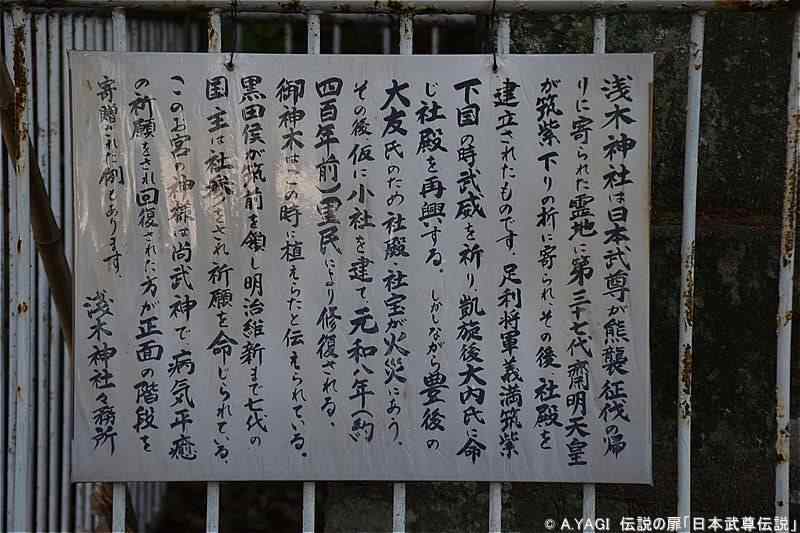 浅木神社は日本武尊が熊襲征伐の帰
りに寄られた霊地に第三十七代齋明天皇
が筑紫下りの折に寄られ、その後社殿を
建立されたものです、足利将軍義満筑紫
下国の時武威を祈り、凱旋後大内氏に命
じ社殿を再興する。しかしながら豊後の
大友氏のため社殿、社宝が火災にあう、
その後仮に小社を建て元和八年(約
四百年前)里民により修復される、
御神木はこの時に植えらたと伝えられている。
黒田侯が筑前を領し明治維新まで七代の
国主は社詣りをされ祈願を命じられている、
このお宮の神様は尚武神で病気平癒
の祈願をされ回復された方が正面の階段を
寄贈された例もあります、
浅木神社々務所
© A.YAGI 伝説の扉「日本武尊伝説」